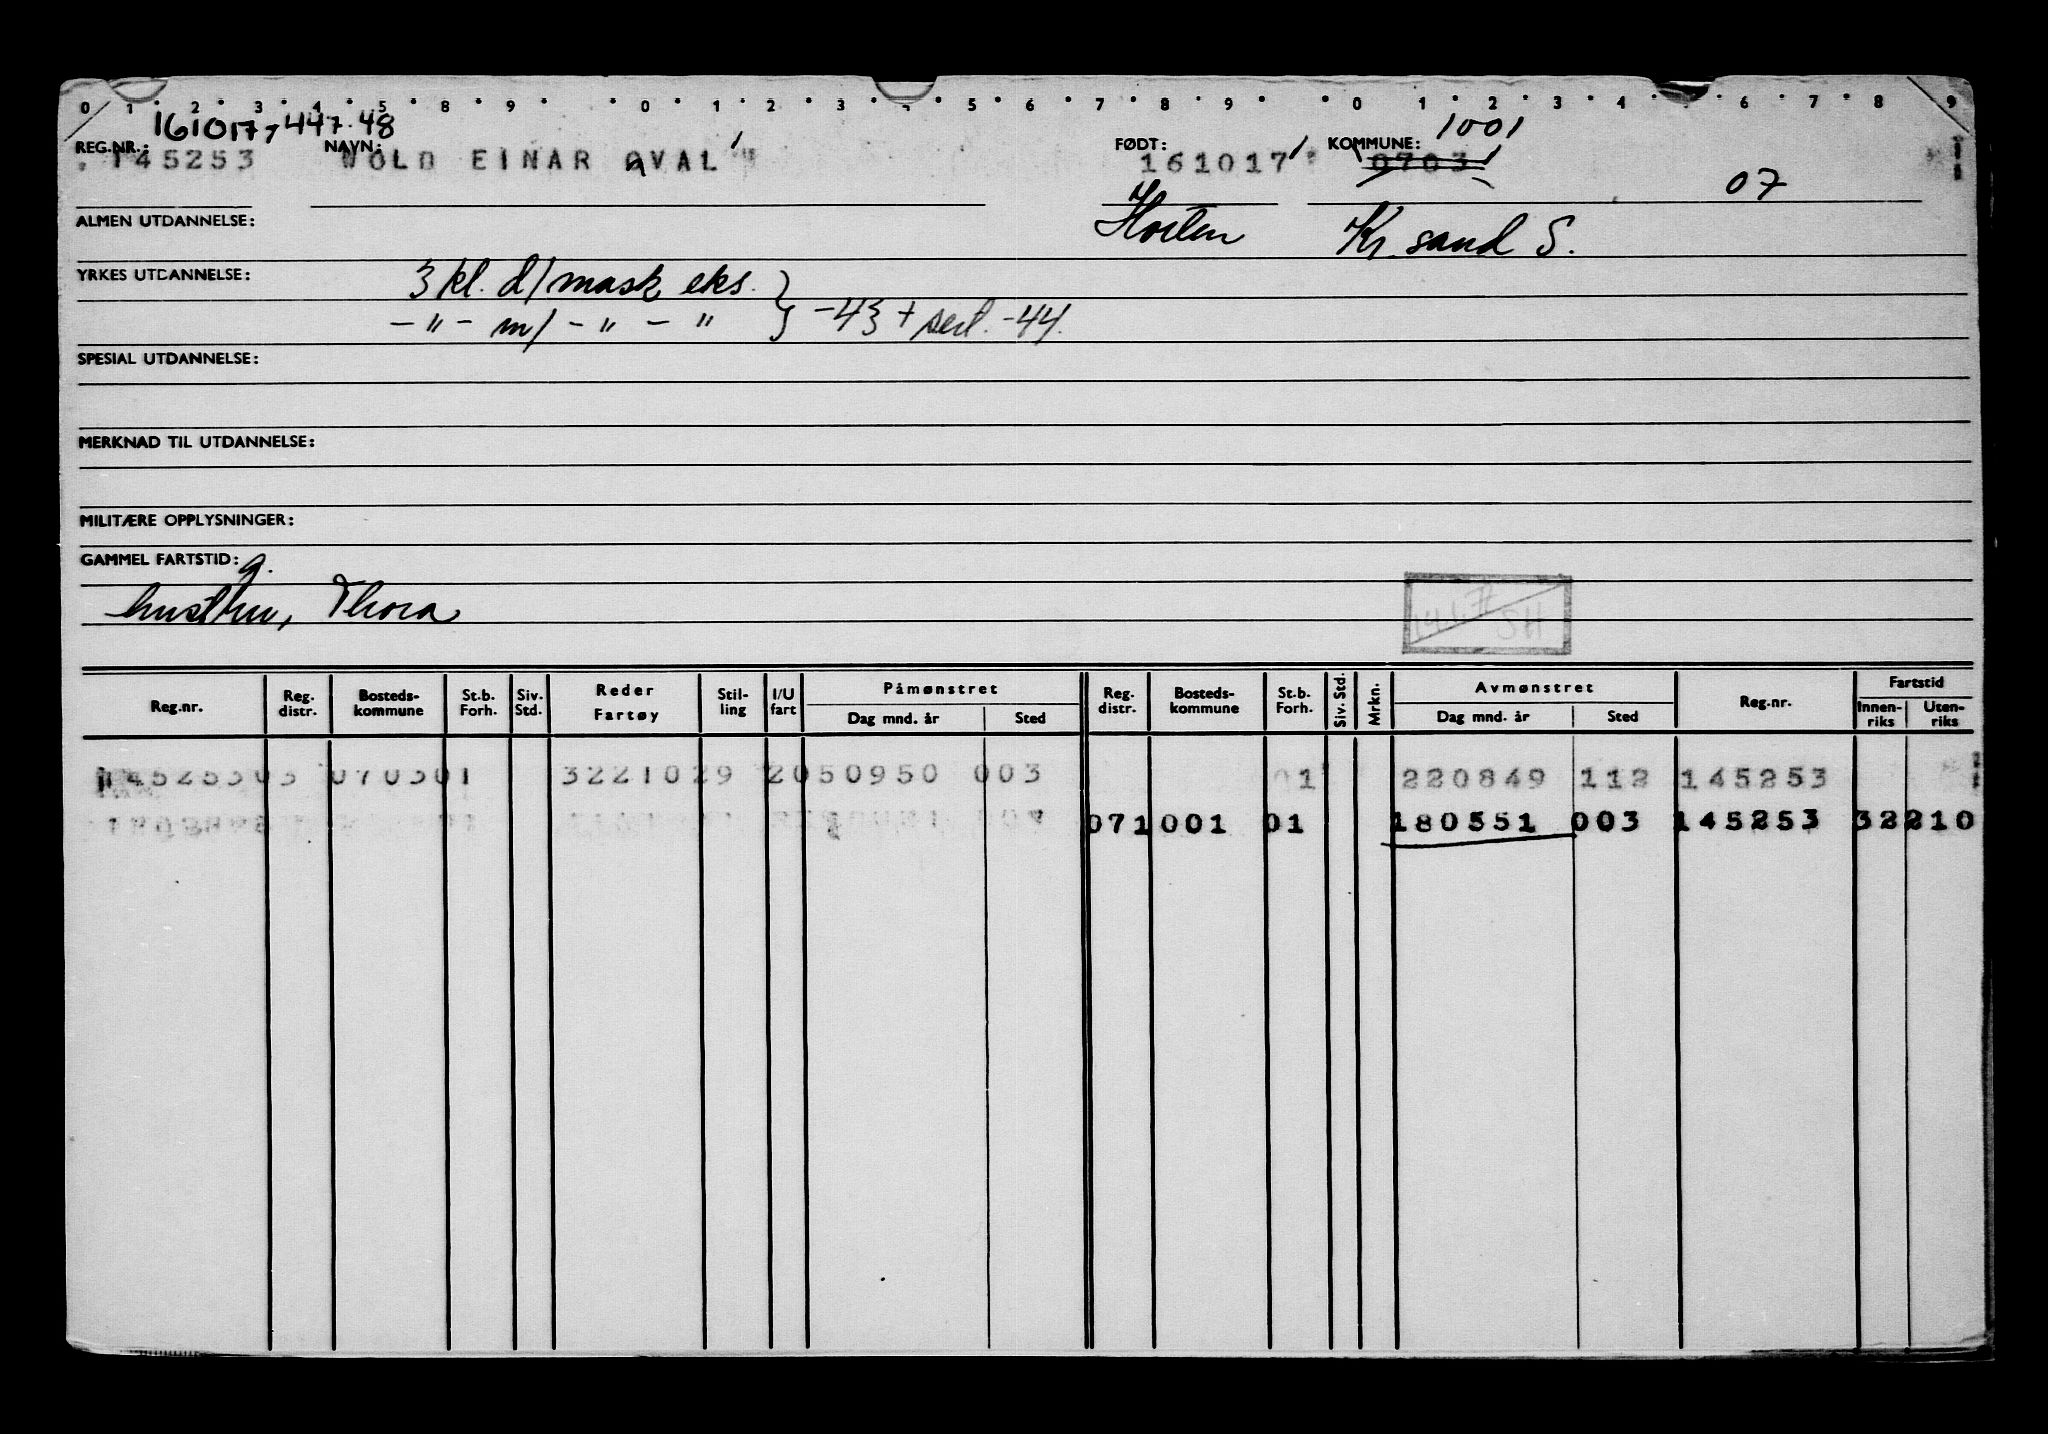 0 1 2 3 4 5 8 9 0 1 2 3 4 5 6 7 8 9 0 1 2 3 4 6 7 8 9
161017, 447.48
1001
REG.NR.: NAVN: FØDT: KOMMUNE:
145253 WOLD EINAR AVAL 161017 0703
07
ALMEN UTDANNELSE: Horten Kr.sand S.
YRKES UTDANNELSE: 3 kl. d/mask eks.
- " - m/ - " - " } -43 + sert. -44.
SPESIAL UTDANNELSE:
MERKNAD TIL UTDANNELSE:
MILITÆRE OPPLYSNINGER:
GAMMEL FARTSTID: g.
husthu, Thora
SH
Reg.nr. Reg. distr. Bosteds-kommune St.b. Forh. Siv. Std. Reder Fartøy Stil-ling I/U fart Påmønstret Dag mnd. år Sted Reg. distr. Bosteds-kommune St.b. Forh. Siv. Std. Mrkn. Avmønstret Dag mnd. år Sted Reg.nr. Fartstid Innen-riks Uten-riks
145253 03 0703 01 3221029 2 050950 003 01 220849 112 145253
07 1001 01 180551 003 145253 32210